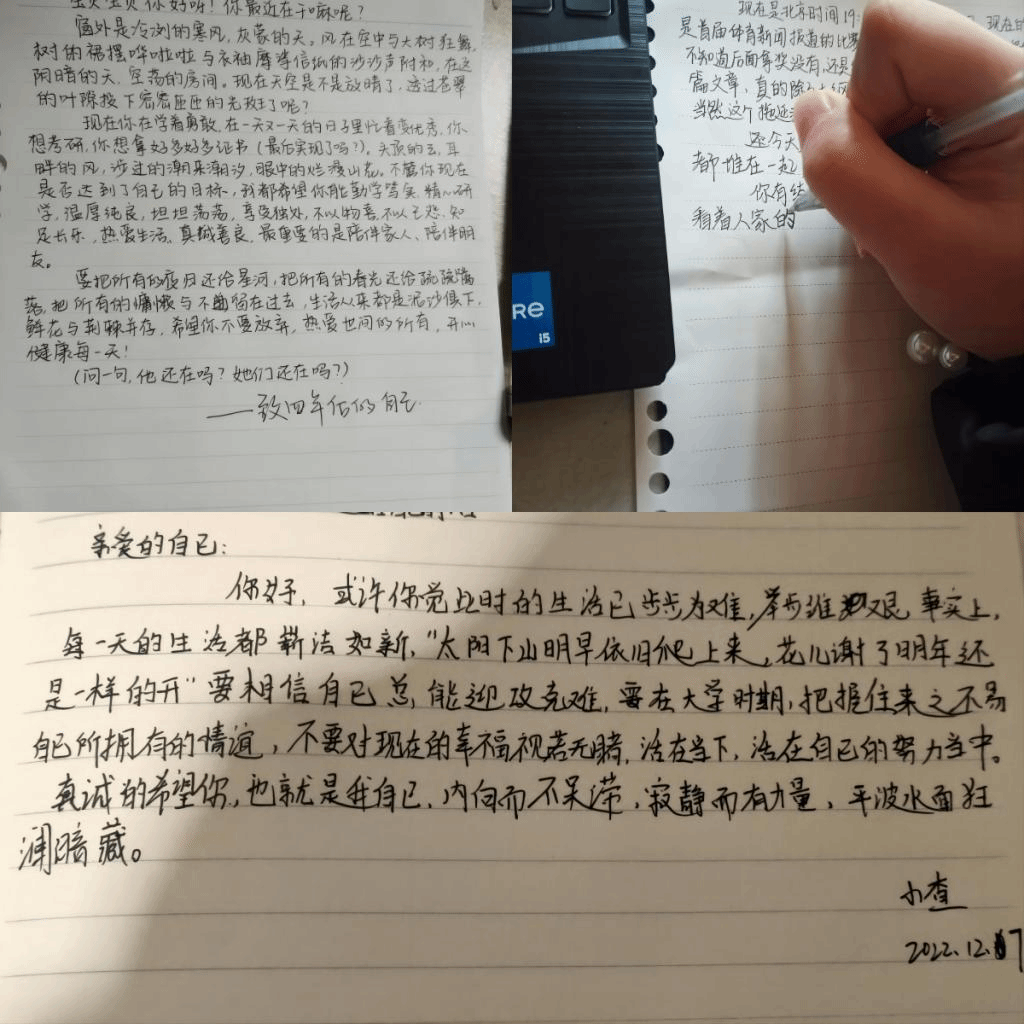 宝贝宝贝你好呀！你最近在干嘛呢？
窗外是冷冽的寒风，灰蒙的天。风在空中与大树狂舞，
树的裙摆哗啦啦与衣袖摩挲信纸的沙沙声附和，在这
阴暗的天、空荡的房间。现在天空是不是放晴了，透过苍翠
的叶隙投下密密匝匝的光斑了呢？
现在你在学着勇敢，在一天又一天的日子里忙着变优秀，你
想考研，你想拿好多好多证书（最后实现了吗？）。头顶的云，耳
畔的风，涉过的潮来潮汐，眼中的烂漫山花。不管你现在
是否达到了自己的目标，我都希望你能勤学笃实，精心研
学，温厚纯良，坦坦荡荡，享受独处，不以物喜，不以己悲，知
足长乐，热爱生活，真诚善良，最重要的是陪伴家人、陪伴朋
友。
要把所有的夜归还给星河，把所有的春光还给疏疏篱
落，把所有的慵懒与不 留在过去，生活从来都是泥沙俱下，
鲜花与荆棘并存，希望你不要放弃，热爱世间的所有，开心
健康每一天！
（问一句，他还在吗？她们还在吗？）
——致四年后的自己
现在是北京时间19:
现在的
是首届体育新闻报道的比赛
不知道后面拿奖没有，还是
篇文章，真的
当然这个拖延
还今天
都堆在一起
你有
看着人家的
RE
i5
亲爱的自己：
你好，或许你觉此时的生活已步步为难，举步维艰，事实上，
每一天的生活都崭洁如新，“太阳下山明早依旧爬上来，花儿谢了明年还
是一样的开”要相信自己总能迎攻克难，要在大学时期，把握住来之不易
自己所拥有的情谊，不要对现在的幸福视若无睹，活在当下，活在自己的努力当中。
真诚的希望你，也就是我自己，内向而不呆滞，寂静而有力量，平波水面狂
澜暗藏。
小查
2022.12.17